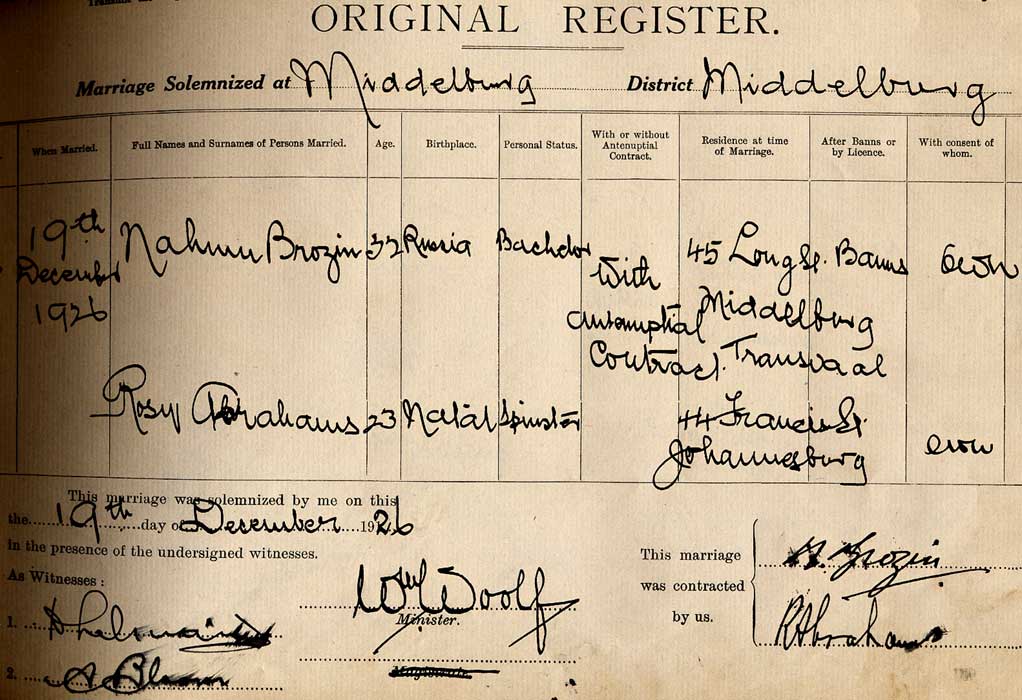 ORIGINAL REGISTER.
Marriage Solemnized at Middelburg District Middelburg
When Married. Full Names and Surnames of Persons Married. Age. Birthplace. Personal Status. With or without Antenuptial Contract. Residence at time of Marriage. After Banns or by Licence. With consent of whom.
19th December 1926
Nahum Brozin 32 Russia Bachelor
With
Antenuptial
Contract
45 Long St.
Middelburg
Transvaal
Banns
own
Rosy Abrahams 23 Natal Spinster
44 Francis St.
Johannesburg
own
This marriage was solemnized by me on this
the 19th day of December 1926
in the presence of the undersigned witnesses.
As Witnesses :
1.
2.
Woolf
Minister.
Magistrate.
This marriage
was contracted
by us.
Brozin
R Abrahams